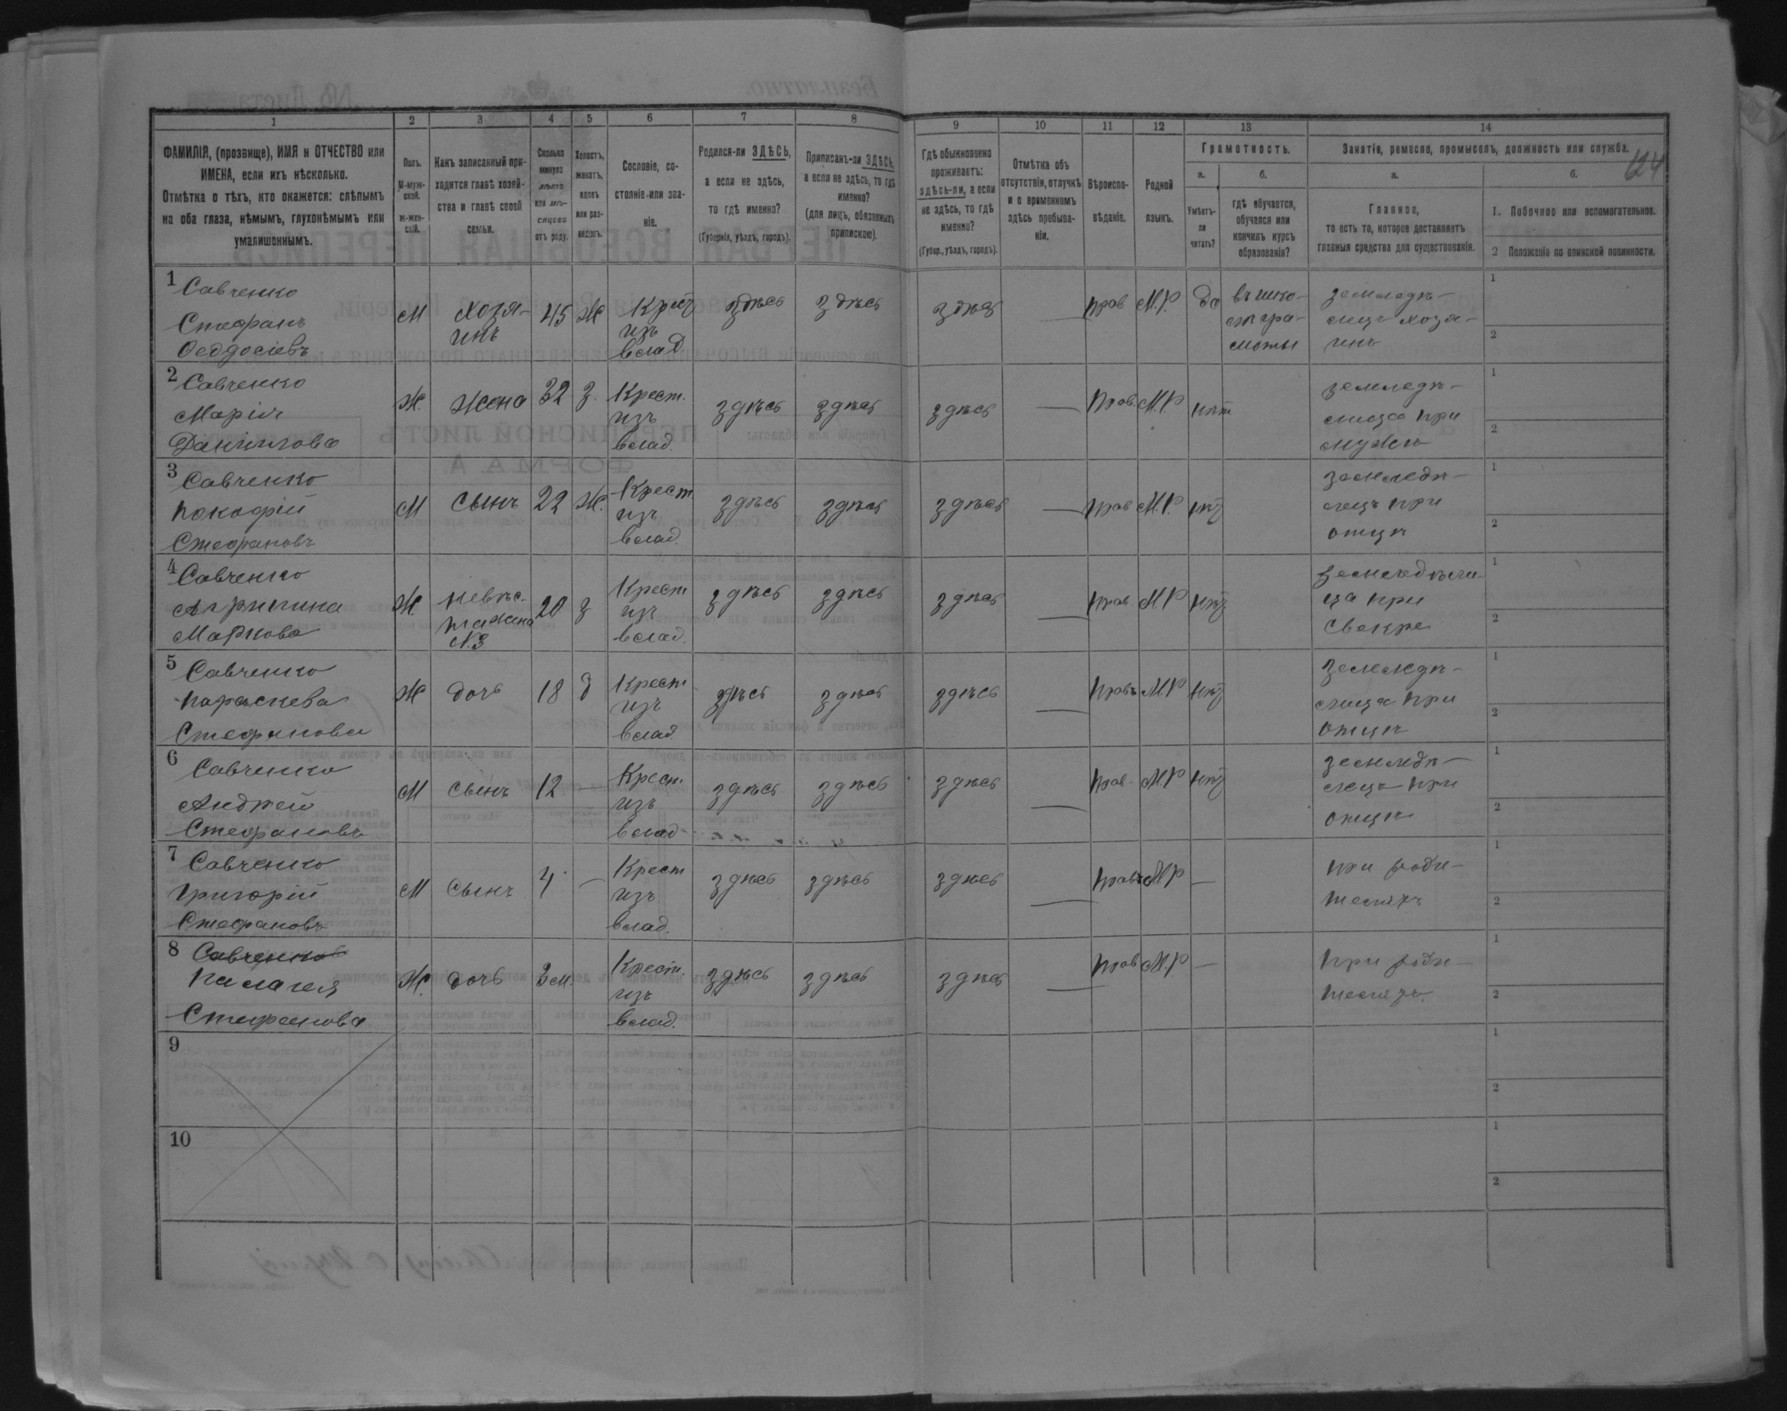 1 2 3 4 5 6 7 8 9 10 11 12 13 14
124
ФАМИЛІЯ, (прозвище), ИМЯ и ОТЧЕСТВО или
ИМЕНА, если ихъ нѣсколько.
Отмѣтка о тѣхъ, кто окажется: слѣпымъ
на оба глаза, нѣмымъ, глухонѣмымъ или
умалишоннымъ.
Полъ.
М-муж-
ской.
ж-жен-
скій.
Какъ записанный при-
ходится главѣ хозяй-
ства и главѣ своей
семьи.
Сколько
минуло
лѣтъ
или мѣ-
сяцевъ
отъ роду.
Холостъ,
женатъ,
вдовъ
или раз-
веденъ.
Сословіе, со-
стояніе или зва-
ніе.
Родился-ли ЗДѢСЬ,
а если не здѣсь,
то гдѣ именно?
(Губернія, уѣздъ, городъ).
Приписанъ-ли ЗДѢСЬ,
а если не здѣсь, то гдѣ
именно?
(для лицъ, обязанныхъ
припискою).
Гдѣ обыкновенно
проживаетъ:
здѣсь-ли, а если
не здѣсь, то гдѣ
именно?
(Губер., уѣздъ, городъ).
Отмѣтка объ
отсутствіи, отлучкѣ
и о временномъ
здѣсь пребыва-
ніи.
Вѣроиспо-
вѣданіе.
Родной
языкъ.
Грамотность.
а.
Умѣетъ-
ли
читать?
б.
гдѣ обучается,
обучался или
кончилъ курсъ
образованія?
Занятіе, ремесло, промыселъ, должность или служба.
а.
Главное,
то есть то, которое доставляетъ
главныя средства для существованія.
б.
1. Побочное или вспомогательное.
2 Положеніе по воинской повинности.
1 Савченко
Стефанъ
Феодосіевъ
М
хозя-
инъ
45
Ж
Крест
изъ
влад
здѣсь
здѣсь
здѣсь
—
прав
М.Р.
да
въ шко-
лѣ гра-
моты
земледѣ-
лецъ хозя-
инъ
1
2
2 Савченко
Марія
Данилова
Ж.
жена
32
з.
Крест.
изъ
влад.
здѣсь
здѣсь
здѣсь
—
Прав.
М.Р
нѣт
земледѣ-
лица при
мужѣ
1
2
3 Савченко
Прокофій
Стефановъ
М
сынъ
22
Ж.
Крест
изъ
влад.
здѣсь
здѣсь
здѣсь
—
Прав
М.Р.
нѣт
земледѣ-
лецъ при
отцѣ
1
2
4 Савченко
Агрипина
Маркова
Ж
невѣс-
та жена
№3
20
з
Крест
изъ
влад.
здѣсь
здѣсь
здѣсь
—
прав
М.Р
нѣт
земледѣли-
ца при
свекре
1
2
5 Савченко
Параскева
Стефанова
Ж
дочь
18
д
Крест
изъ
влад
здѣсь
здѣсь
здѣсь
—
Правъ
М.Р
нѣт
земледѣ-
лица при
отцѣ
1
2
6 Савченко
Андрей
Стефановъ
М
сынъ
12
—
Крест.
изъ
влад
здѣсь
здѣсь
здѣсь
—
Прав
М.Р
нѣт
земледѣ-
лецъ при
отцѣ
1
2
7 Савченко
Григорій
Стефановъ
М
сынъ
4
—
Крест
изъ
влад.
здѣсь
здѣсь
здѣсь
—
Правъ
М.Р
—
при роди-
теляхъ
1
2
8 Савченко
Палагея
Стефанова
Ж.
дочь
3м
Крест.
изъ
влад.
здѣсь
здѣсь
здѣсь
—
прав
М.Р
—
при роди-
теляхъ.
1
2
9
1
2
10
1
2